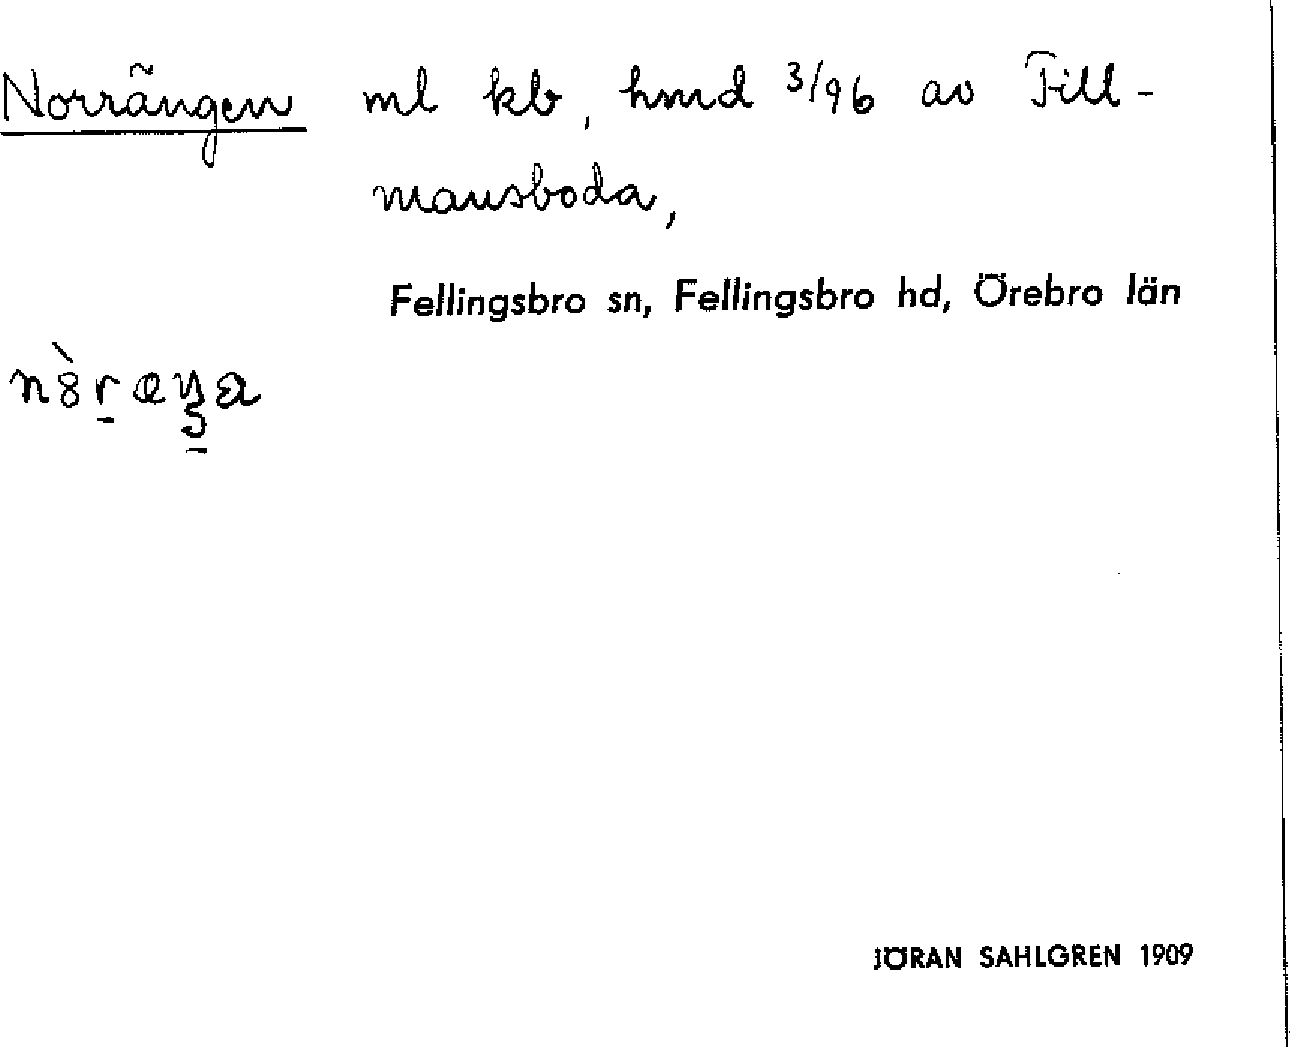 Norrängen ml kb, hmd 3/96 av Fill-
mansboda,
Fellingsbro sn, Fellingsbro hd, Örebro län
JÖRAN SAHLGREN 1909